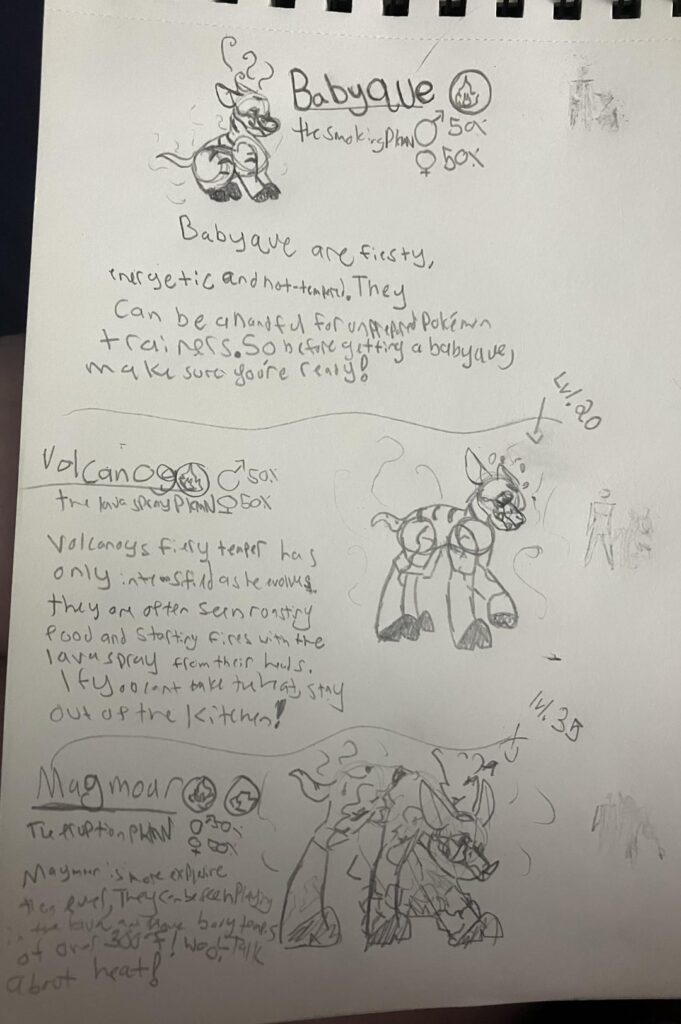 Babyque
the smoking PKMN ♂ 50%
♀ 50%
Babyque are fiesty,
energetic and hot-tempered. They
can be a handful for unprepared Pokémon
trainers. So before getting a babyque,
make sure you're ready!
Lvl. 20
Volcanog ♂ 50%
the lava spray PKMN ♀ 50%
Volcanoys fiery temper has
only intensified as he evolves.
they are often seen roasting
food and starting fires with the
lava spray from their heads.
If you cant take the heat, stay
out of the kitchen!
lvl. 35
Magmour
The eruption PKMN ♂ 50%
♀ 50%
Magmour is more explosive
then ever, They can be seen playing
in the lava, and have body temps
of over 300°F! Woah, Talk
about heat!